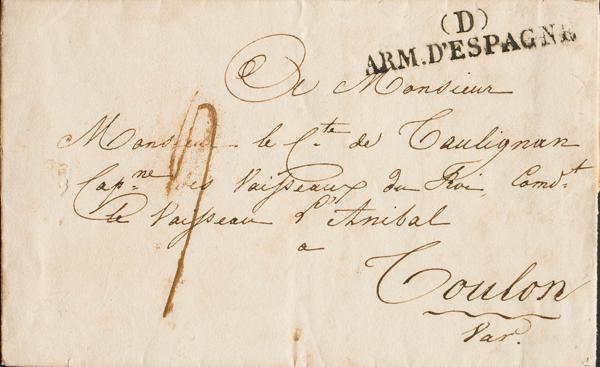 (D)
ARM. D'ESPAGNE
A Monsieur
Monsieur le C.te de Taulignan
Cap.ne des Vaisseaux du Roi, Comd.t
le Vaisseau l'Anibal
a
Toulon
Var.